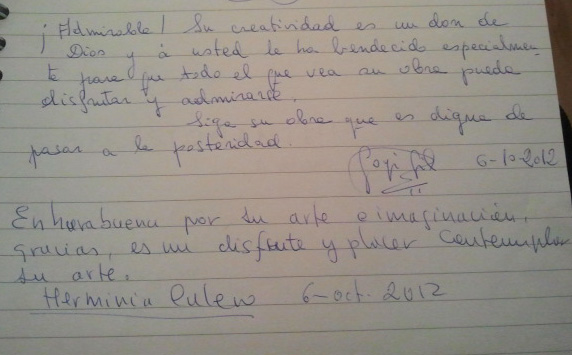 ¡Admirable! Su creatividad es un don de
Dios y á usted le ha bendecido especialmen-
te para que todo el que vea su obra pueda
disfrutar y admirarse.
Siga su obra que es digna de
pasar a la posteridad.
6-10-2012
Enhorabuena por su arte e imaginación,
gracias, es un disfrute y placer contemplar
su arte.
Herminia 6-oct. 2012